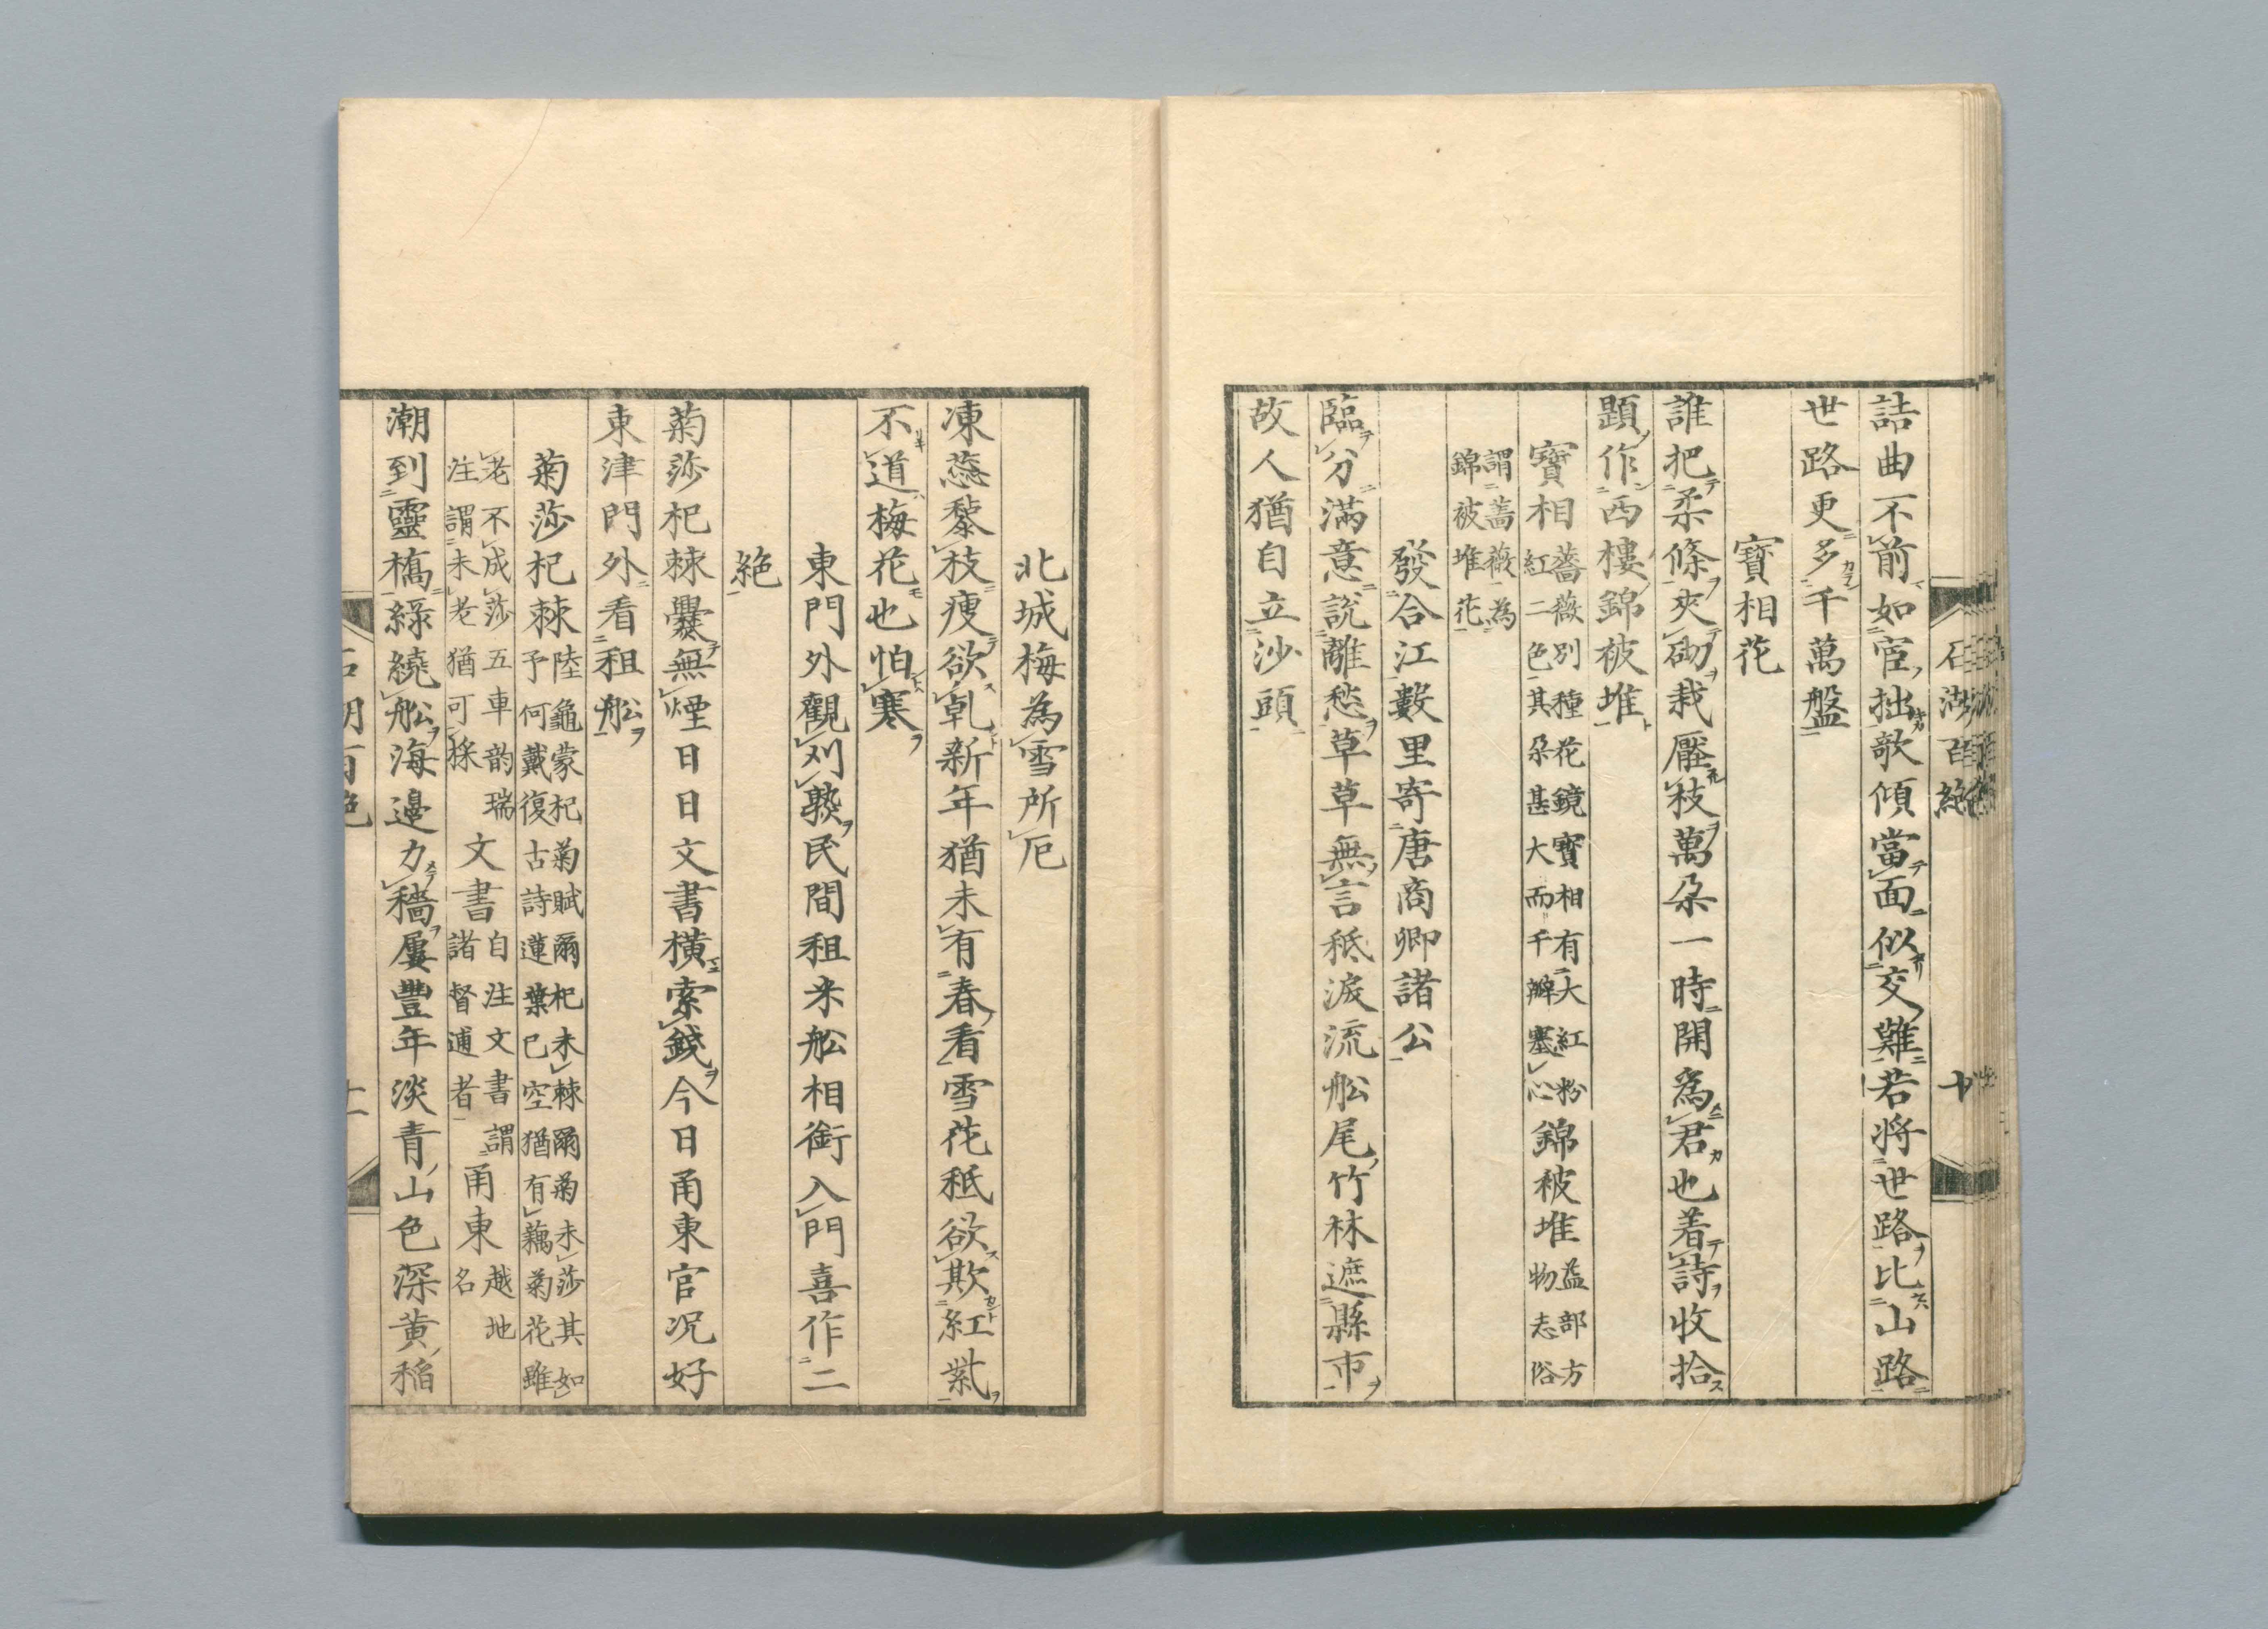 石湖百絶 十
詰曲不前如宦拙欹傾當面似交難若将世路比山路
世路更多千萬盤
寶相花
誰把柔條夾砌栽壓枝萬朶一時開為君也着詩收拾
題作西樓錦被堆
寶相薔薇別種花鏡寶相有大紅粉紅二色其朶甚大而千瓣塞心錦被堆益部方物志俗
謂薔薇為錦被堆花
發合江數里寄唐商卿諸公
臨分滿意說離愁草草無言秪淚流舩尾竹林遮縣市
故人猶自立沙頭
北城梅為雪所厄
凍蕊黎枝瘦欲乾新年猶未有春看雪花秪欲欺紅紫
不道梅花也怕寒
東門外觀刈熟民間租米舩相銜入門喜作二
絶
菊莎杞棘爨無煙日日文書橫索錢今日甬東官况好
東津門外看租舩
菊莎杞棘陸龜蒙杞菊賦爾杞未棘爾菊未莎其如予何戴復古詩蓮葉已空猶有藕菊花雖
老不成莎五車韵瑞注謂未老猶可採文書自注文書謂諸督逋者甬東越地名
潮到靈橋綠繞舩海邊力穡屢豐年淡青山色深黄稲